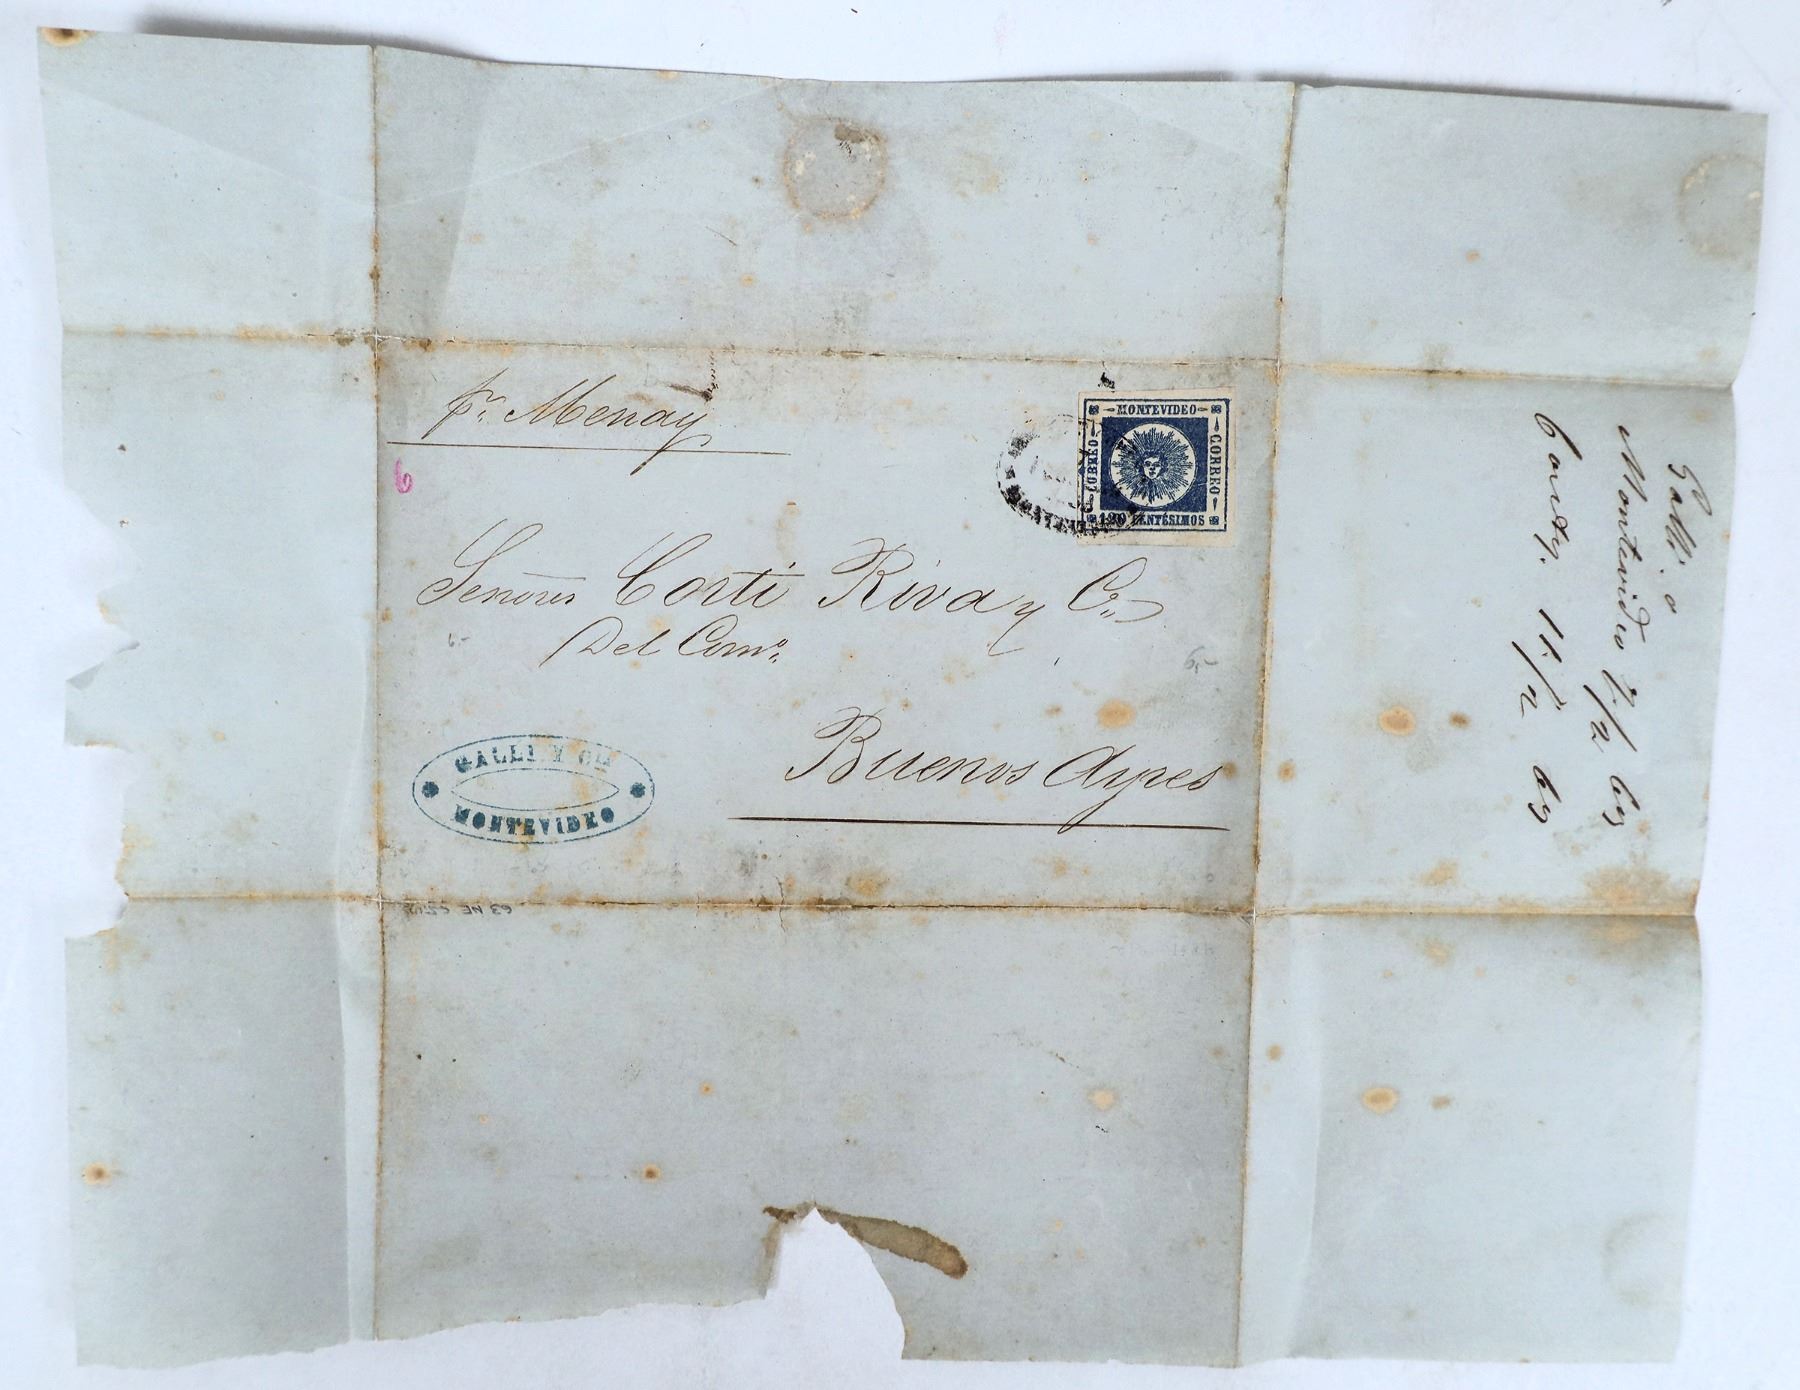 pr. Menay
6
MONTEVIDEO
CORREO
CORREO
120 CENTÉSIMOS
Señores Corti Riva y Ca.
Del Como.
6.-
6.-
Buenos Ayres
GALLI Y Cia
MONTEVIDEO
Galli.
Montevideo 7/2 63
Conty. 11/2 63